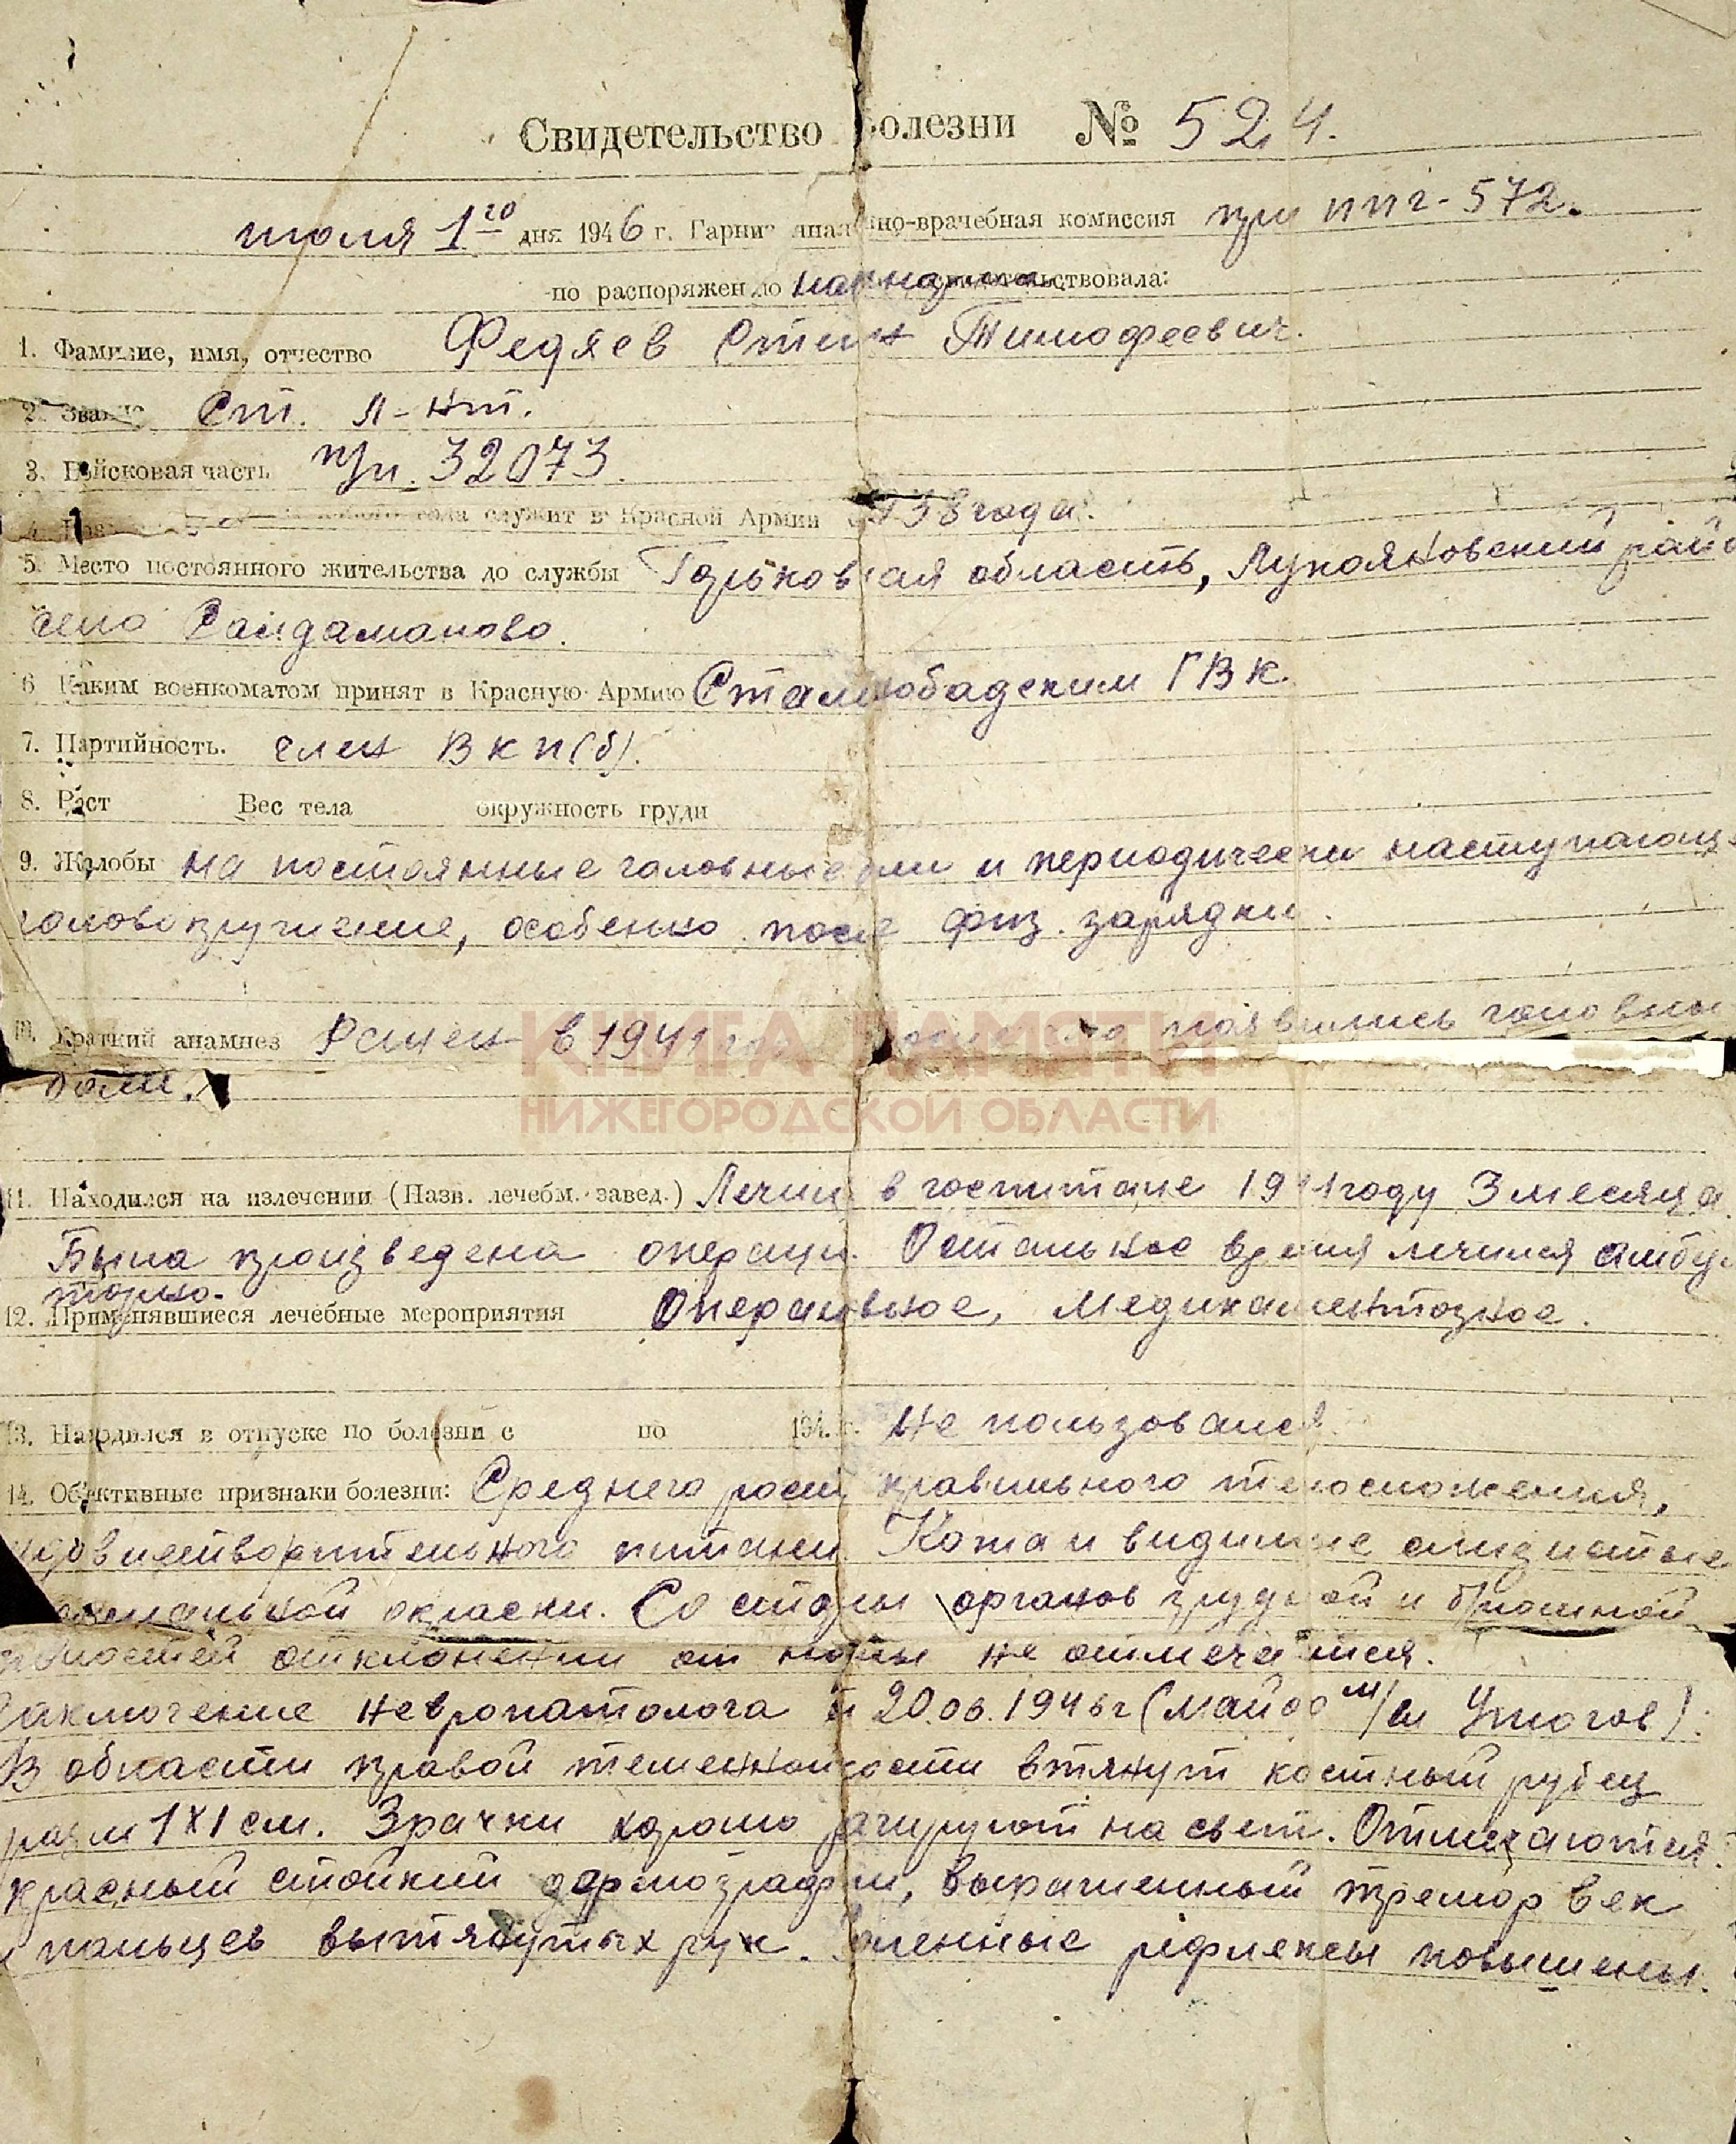 Свидетельство болезни № 524.
июля 1го дня 1946 г. Гарни но-врачебная комиссия при ппг-572.
по распоряжен
1. Фамилие, имя, отчество Федяев Степан Тимофеевич.
2. Звание Ст. л-нт.
3. Войсковая часть п/п. 32073.
4. года служит в Красной Армии с 1938 года.
5. Место постоянного жительства до службы Горьковская область, Лукояновский район
село Сайдаманово.
6 Каким военкоматом принят в Красную Армию Сталинобадским ГВК.
7. Партийность. член ВКП(б).
8. Рост Вес тела окружность груди
9. Жалобы на постоянные головные боли и периодически наступающ.
головокружение, особенно после физ. зарядки.
10. Краткий анамнез Ранен в 1941 появились головные
КНИГА ПАМЯТИ
боли.
НИЖЕГОРОДСКОЙ ОБЛАСТИ
11. Находился на излечении (Назв. лечебн. завед.) Лечил в госпитале 1941 году 3 месяца.
Была произведена операци. Остальное время лечился амбу-
торно.
12. Применявшиеся лечебные мероприятия Оперативное, медикаментозное.
13. Находился в отпуске по болезни с по 194. г. Не пользовался
14. Объективные признаки болезни: Среднего роста правильного телосложения,
удовлетворительного питани Кожа и видимые слизистые
нормальной окраски. Со стороны органов грудной и брюшной
полостей отклонении от нормы не отмечается.
Заключение невропатолога от 20.06.1946г (майор м/сл
В области правой теменной кости втянут костный рубец
разм 1х1 см. Зрачки хорошо реагируют на свет. Отмечаются
красный стойкий дермографизм, выраженный тремор век
и пальцев вытянутых рук. Коленные рефлексы повышены.